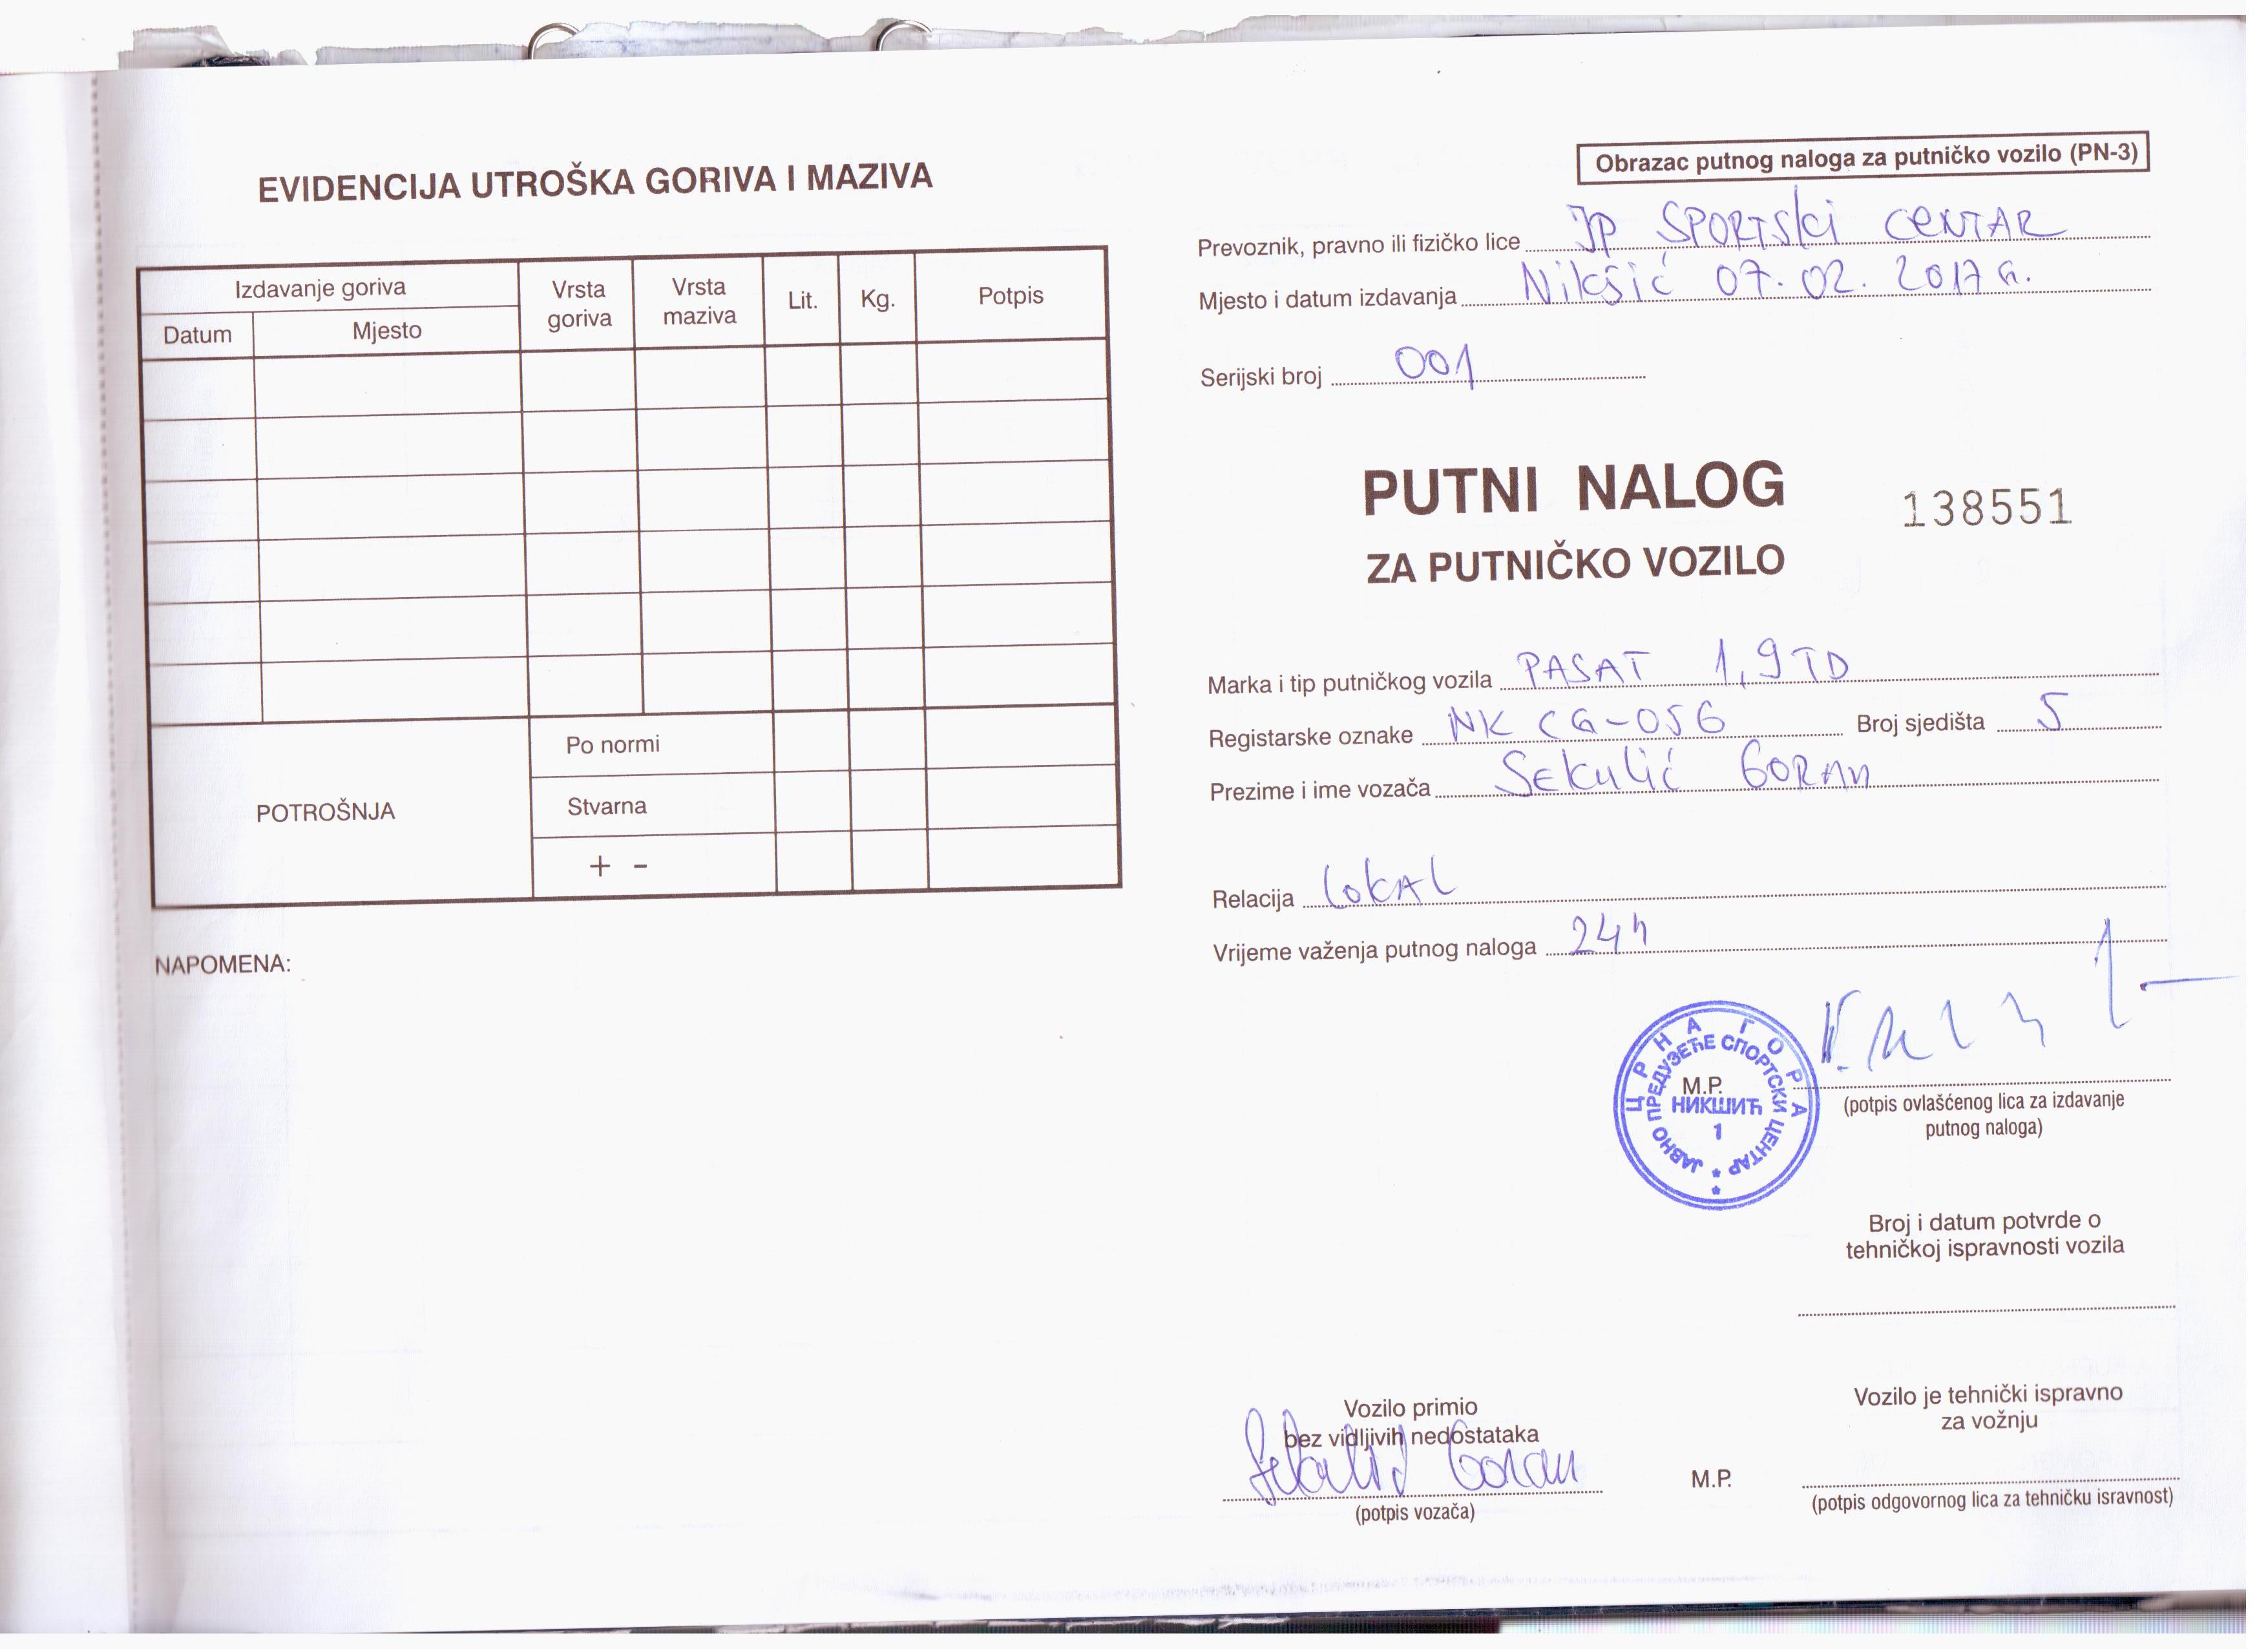 EVIDENCIJA UTROŠKA GORIVA I MAZIVA
Izdavanje goriva
Datum
Mjesto
Vrsta goriva
Vrsta maziva
Lit.
Kg.
Potpis
POTROŠNJA
Po normi
Stvarna
+ -
NAPOMENA:
Obrazac putnog naloga za putničko vozilo (PN-3)
Prevoznik, pravno ili fizičko lice JP SPORTSKI CENTAR
Mjesto i datum izdavanja Nikšić 07.02.2017 G.
Serijski broj 001
PUTNI NALOG
138551
ZA PUTNIČKO VOZILO
Marka i tip putničkog vozila PASAT 1,9 TD
Registarske oznake NK CG-056 Broj sjedišta 5
Prezime i ime vozača Sekulić GORAN
Relacija LOKAL
Vrijeme važenja putnog naloga 24h
ЦРНА ГОРА
ЈАВНО ПРЕДУЗЕЋЕ СПОРТСКИ ЦЕНТАР
М.Р.
НИКШИЋ
1
(potpis ovlašćenog lica za izdavanje
putnog naloga)
Broj i datum potvrde o
tehničkoj ispravnosti vozila
Vozilo primio
bez vidljivih nedostataka
Sekulić Goran
(potpis vozača)
Vozilo je tehnički ispravno
za vožnju
M.P.
(potpis odgovornog lica za tehničku isravnost)